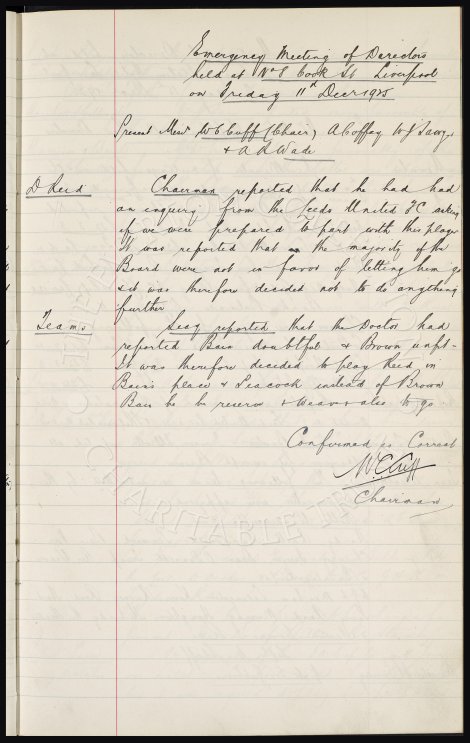 Emergency Meeting of Directors
held at No 8 Cook St Liverpool
on Friday 11th Decr 1925
Present Messrs W C Cuff (Chair) A Coffey W J Sawyer
& A R Wade
D Reid
Chairman reported that he had had
an inquiry from the Leeds United FC asking
if we were prepared to part with this player
It was reported that as the majority of the
Board were not in favor of letting him go
& it was therefore decided not to do anything
further
Teams
Secy reported that the Doctor had
reported Bain doubtful & Brown unfit-
It was therefore decided to play Reid in
Bain's place & Peacock instead of Brown
Bain to be reserve & Weaver also to go
Confirmed as Correct
W. C. Cuff
Chairman
CHARITABLE TR